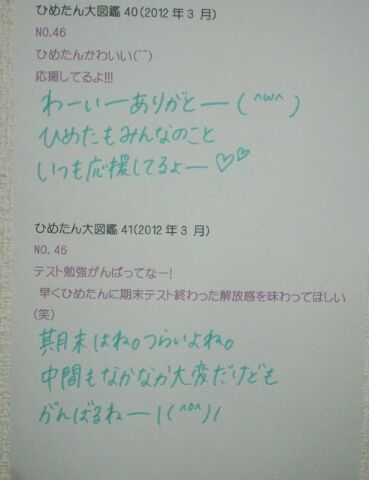 ひめたん大図鑑40(2012年3月)
NO.46
ひめたんかわいい(^^)
応援してるよ!!!
わーいーありがとー(^ω^)
ひめたもみんなのこと
いつも応援してるよー♡♡
ひめたん大図鑑41(2012年3月)
NO.46
テスト勉強がんばってなー!
早くひめたんに期末テスト終わった解放感を味わってほしい
(笑)
期末はね。つらいよね。
中間もなかなか大変だけども
がんばるねー!(^o^)/